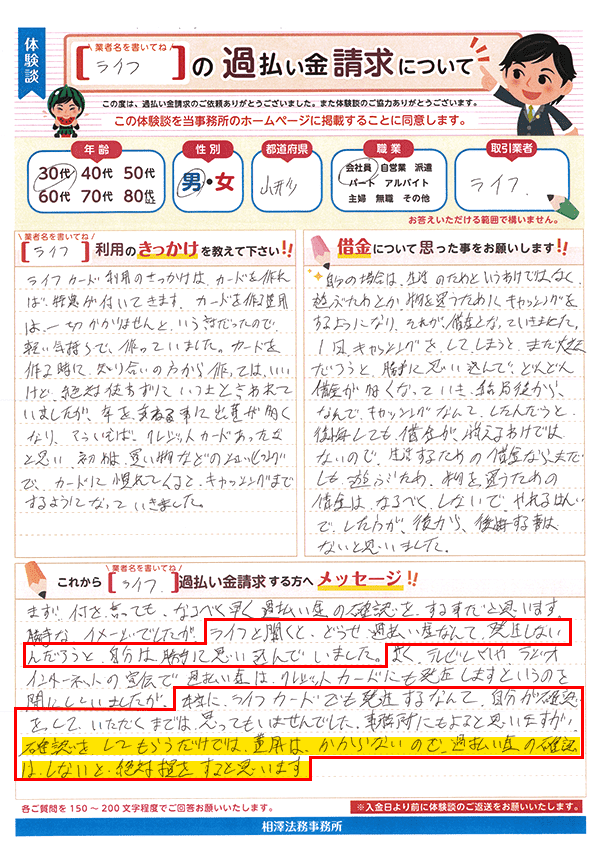 体験談
業者名を書いてね
[ライフ]の過払い金請求について
この度は、過払い金請求のご依頼ありがとうございました。また体験談のご協力ありがとうございます。
この体験談を当事務所のホームページに掲載することに同意します。
年齢
30代 40代 50代
60代 70代 80代以上
性別
男・女
都道府県
職業
会社員 自営業 派遣
パート アルバイト
主婦 無職 その他
取引業者
ライフ
お答えいただける範囲で構いません。
業者名を書いてね
[ライフ]利用のきっかけを教えて下さい!!
ライフカード利用のきっかけは、カードを作れ
ば、特典が付いてきます。カードを作る費用
は、一切かかりませんと、いう事だったので、
軽い気持ちで、作っていました。カードを
作る時に、知り合いの方から作っては、いい
けど、絶対使わずにいろよと言われて
いましたが、年を重ねる事に出費が多く
なり、そういえば、クレジットカードあったな
と思い 初めは、買い物などのショッピング
で、カードに慣れてくると、キャッシングまで
するようになっていきました。
借金について思った事をお願いします!!
自分の場合は、生活のためというわけではなく、
遊ぶためとか、物を買うためにキャッシングを
するようになり、それが、借金となっていきました。
1回、キャッシングをしてしまうと、また大丈夫
だろうと、勝手に思い込んで、どんどん
借金が多くなっていき、結局後から、
なんで、キャッシングなんて、したんだろうと、
後悔しても、借金が、消えるわけでは
ないので、生活するための借金なら、まだ
しも、遊ぶため、物を買うための
借金は、なるべく、しないで、やれるはんい
で、した方が、後から、後悔する事は、
ないと思いました。
業者名を書いてね
これから[ライフ]過払い金請求する方へメッセージ!!
まず、何を言っても、なるべく早く過払い金の確認を、するすだと思います。
勝手な、イメージでしたが、ライフと聞くと、どうせ、過払い金なんて、発生しない
んだろうと、自分は勝手に思い込んでいました。よく、テレビCMや、ラジオ
インターネットの宣伝で過払い金は、クレジットカードにも発生しますというのを
聞いていましたが、本当に、ライフカードでも発生するなんて、自分が確認
をして、いただくまでは、思ってもいませんでした。事務所にもよると思いますが、
確認をしてもらうだけでは、費用は、かからないので、過払い金の確認
は、しないと、絶対損をすると思います
各ご質問を150〜200文字程度でご回答お願いいたします。
※入金日より前に体験談のご返送をお願いいたします。
相澤法務事務所